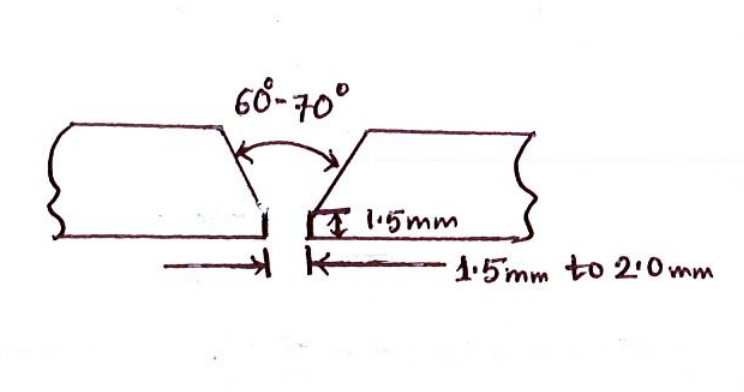 60°-70°
1.5mm
1.5mm to 2.0mm